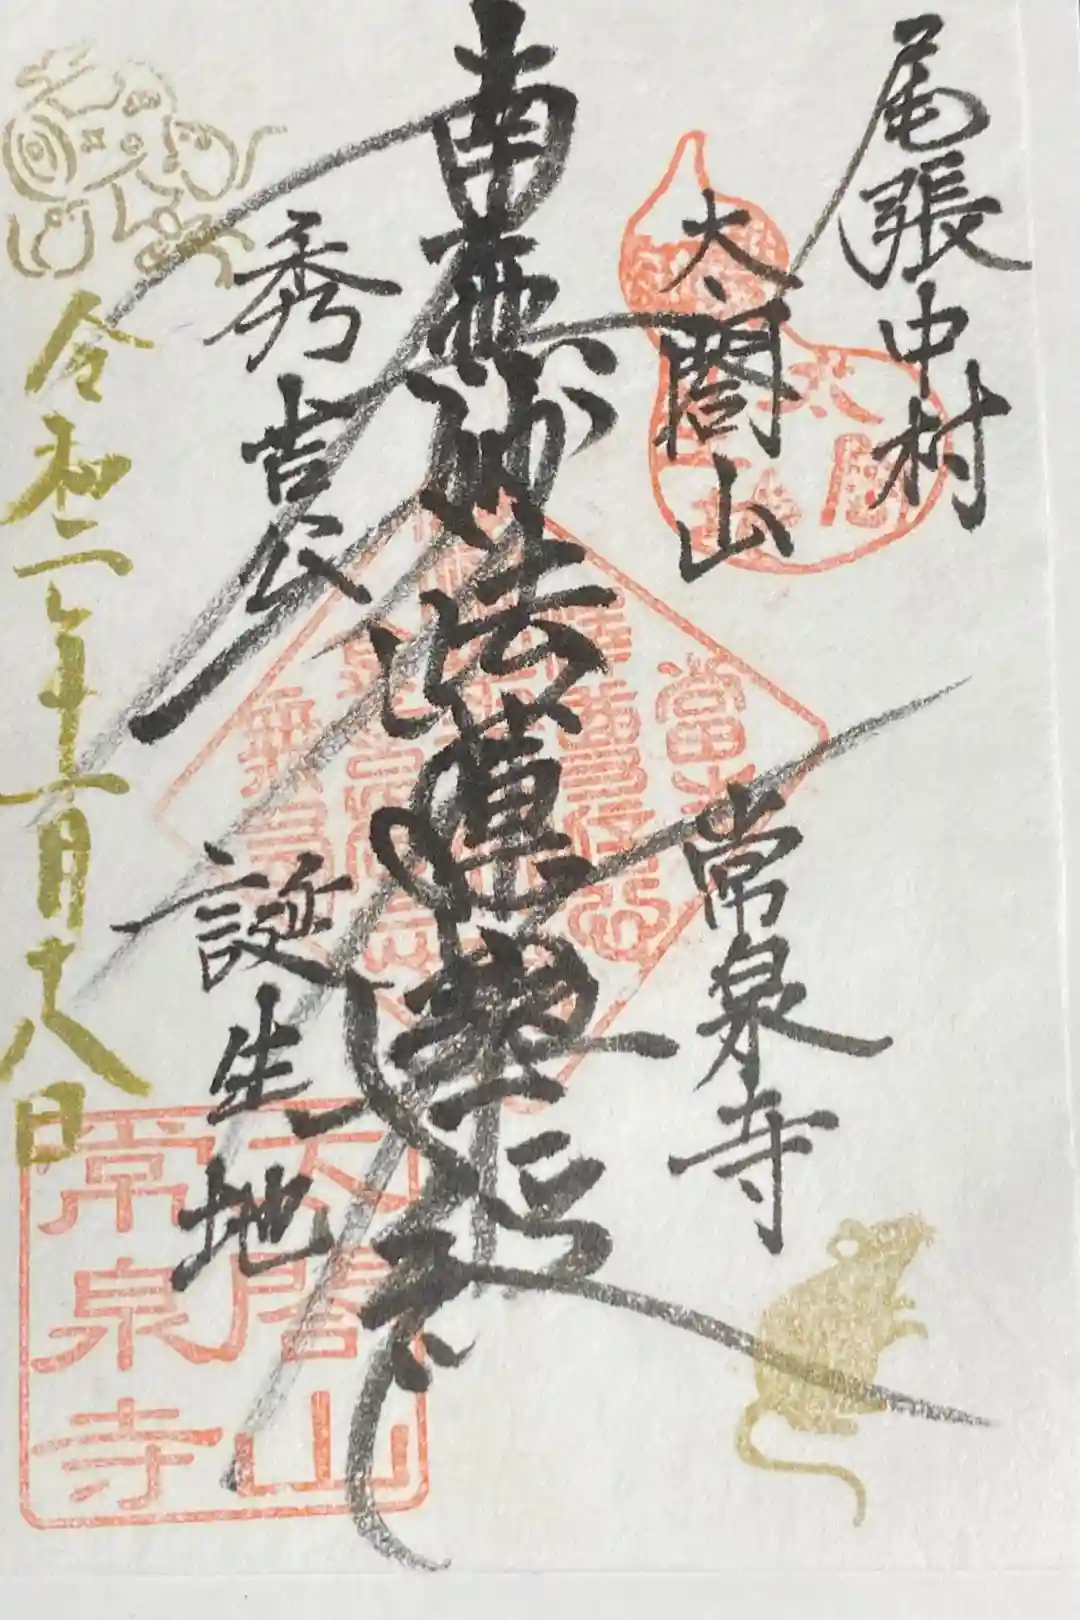 尾張中村
太閤山
常泉寺
南無妙法蓮華経
秀吉公
誕生地
令和二年十一月十八日
太閤山
常泉寺